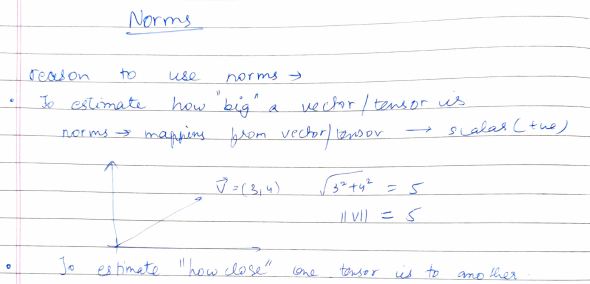 Norms
reason to use norms →
• To estimate how "big" a vector/tensor is
norms → mappins from vector/tensor → scalar (+ve)
v⃗ = (3,4) √3²+4² = 5
||v|| = 5
• To estimate "how close" one tensor is to another